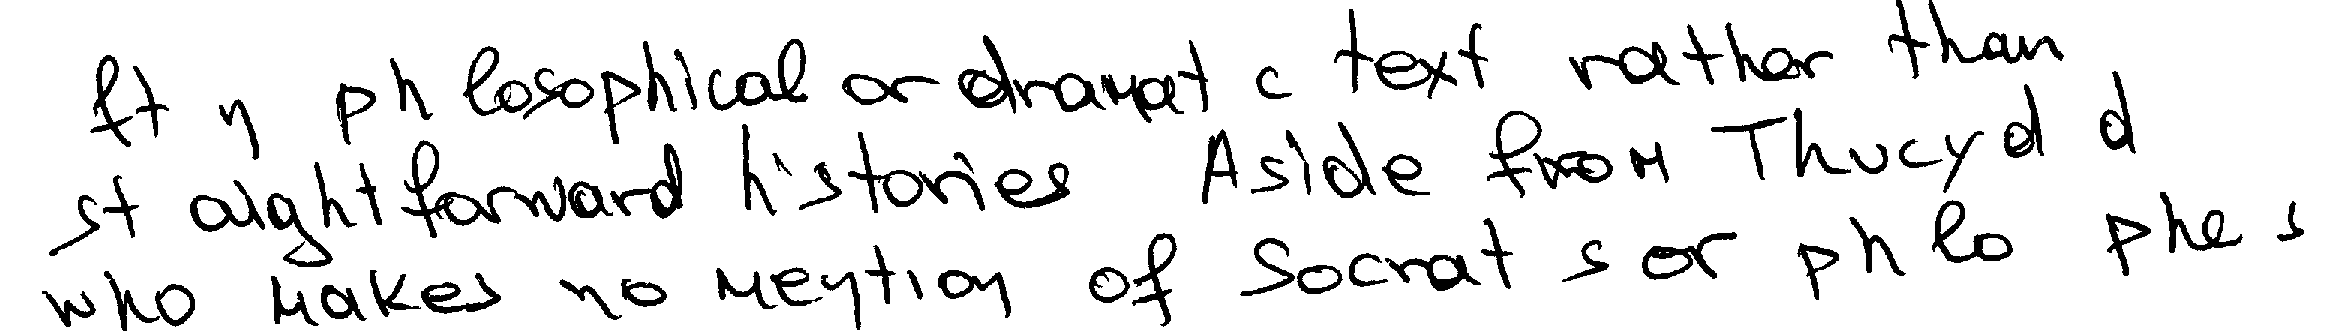 ft n ph losophical or dramat c text rather than
st aightforward histories Aside from Thucyd d
who makes no mention of Socrat s or ph lo phe s